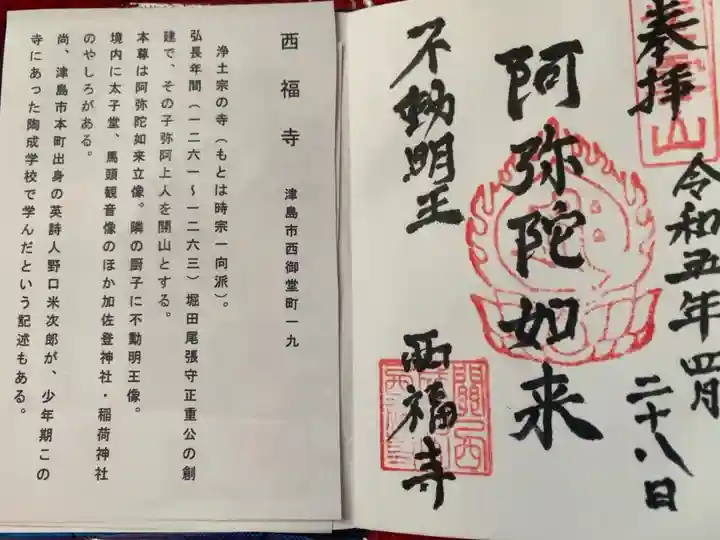 奉拝
令和五年四月
二十八日
阿弥陀如来
不動明王
西福寺
西福寺
津島市西御堂町一九
浄土宗の寺（もとは時宗一向派）。
弘長年間（一二六一～一二六三）堀田尾張守正重公の創
建で、その子弥阿上人を開山とする。
本尊は阿弥陀如来立像。隣の厨子に不動明王像。
境内に太子堂、馬頭観音像のほか加佐登神社・稲荷神社
のやしろがある。
尚、津島市本町出身の英詩人野口米次郎が、少年期この
寺にあった陶成学校で学んだという記述もある。